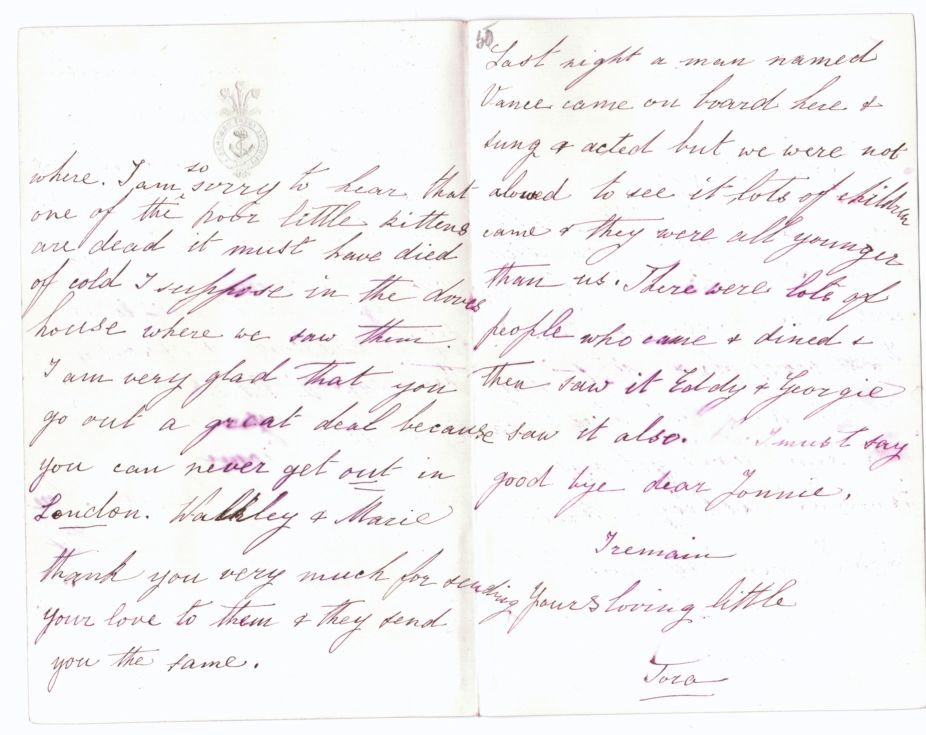 where. I am so sorry to hear that
one of the poor little kittens
are dead it must have died
of cold I suppose in the doves
house where we saw them.
I am very glad that you
go out a great deal because
you can never get out in
London. Walkley & Marie
thank you very much for sending
your love to them & they send
you the same.
50
Last night a man named
Vance came on board here &
sung & acted but we were not
alowed to see it lots of children
came & they were all younger
than us. There were lots of
people who came & dined &
then saw it Eddy & Georgie
saw it also. I must say
good bye dear Jonnie.
I remain
Yours loving little